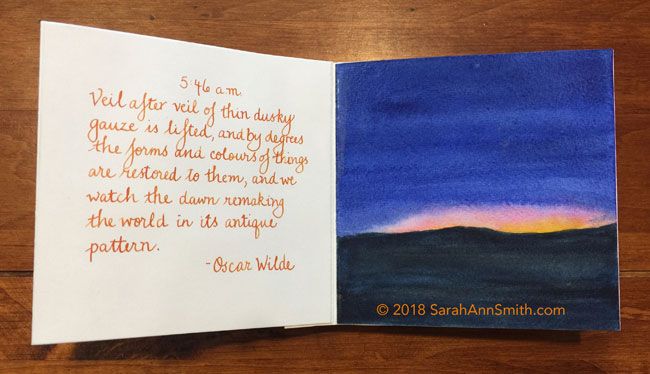 5:46 a.m.
Veil after veil of thin dusky
gauze is lifted, and by degrees
the forms and colours of things
are restored to them, and we
watch the dawn remaking
the world in its antique
pattern.
-Oscar Wilde
© 2018 SarahAnnSmith.com